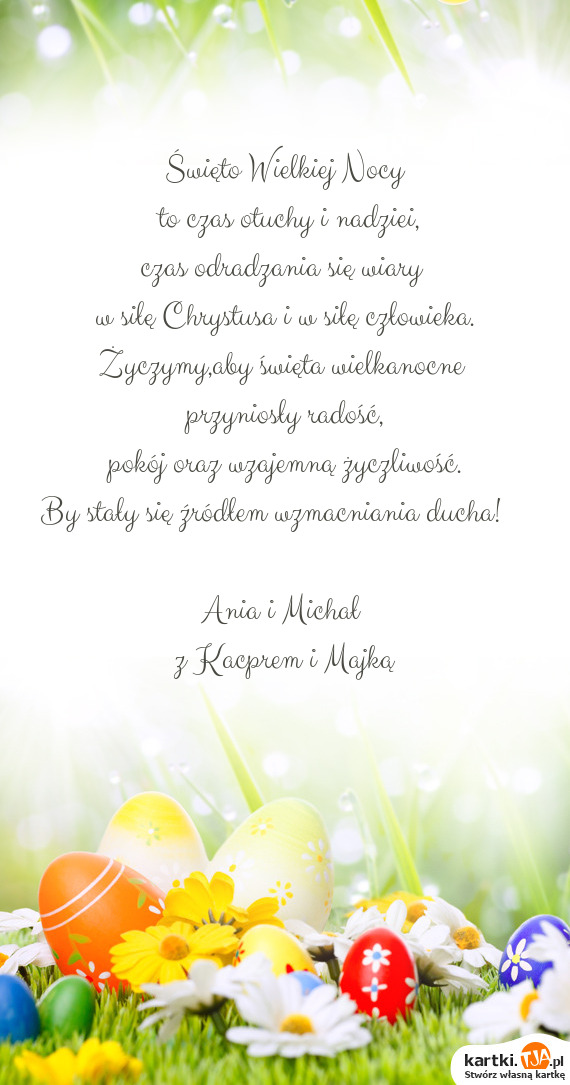 Święto Wielkiej Nocy
to czas otuchy i nadziei,
czas odradzania się wiary
w siłę Chrystusa i w siłę człowieka.
Życzymy,aby święta wielkanocne
przyniosły radość,
pokój oraz wzajemną życzliwość.
By stały się źródłem wzmacniania ducha!
Ania i Michał
z Kacprem i Majką
kartki.TJA.pl
Stwórz własną kartkę